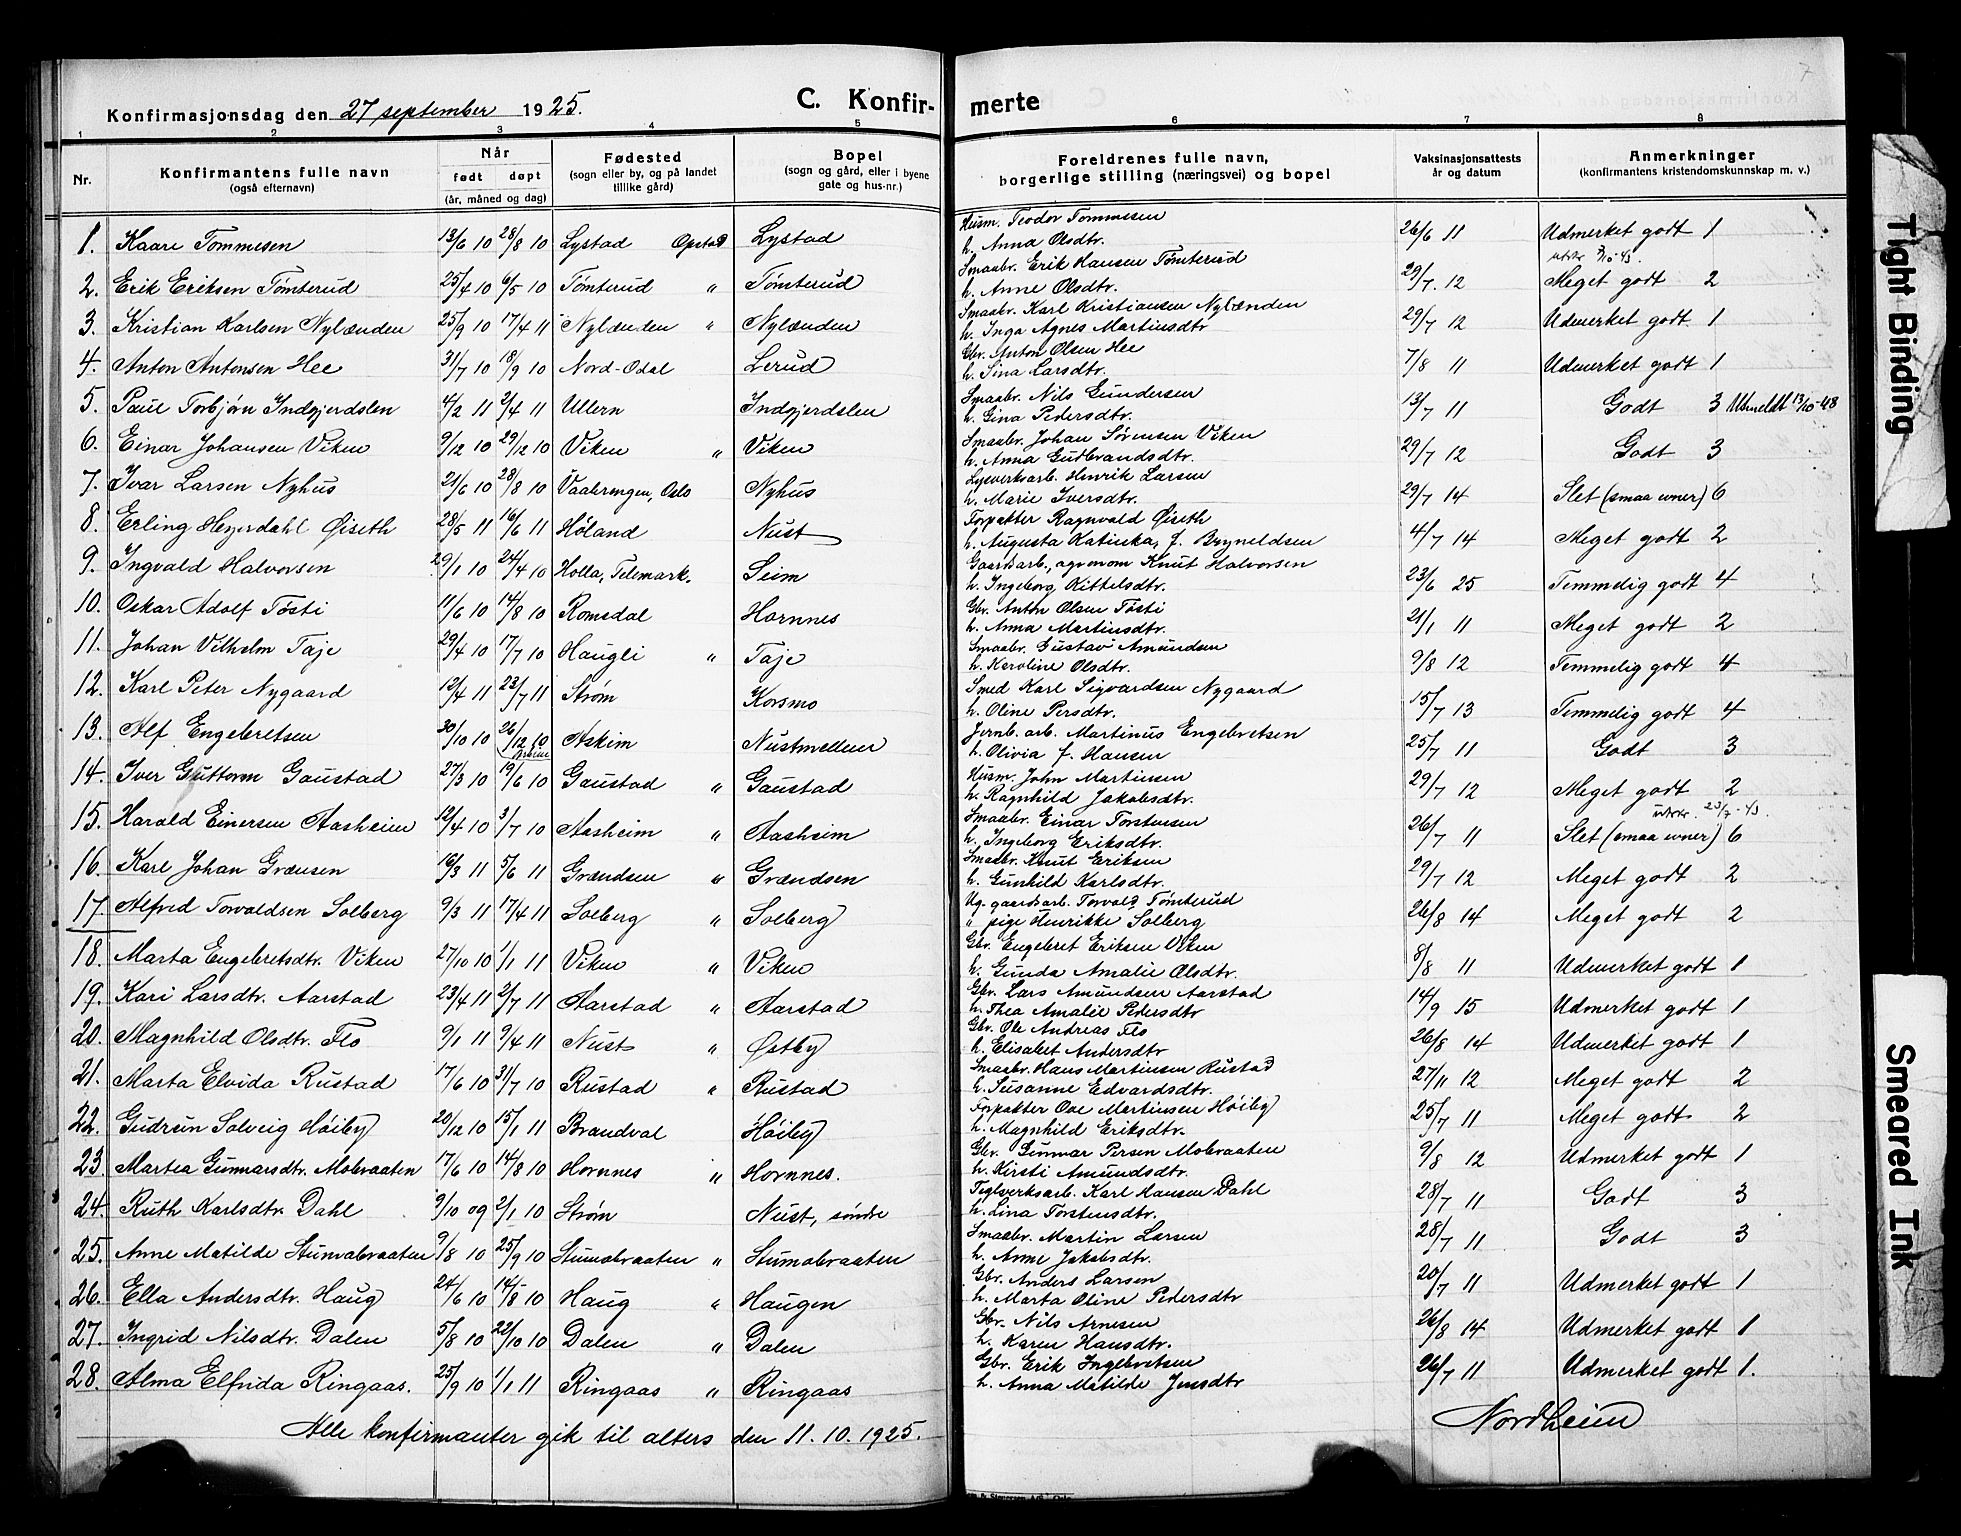 7
Konfirmasjonsdag den 27 september 1925.
C. Konfirmerte
1 2 3 4 5 6 7 8
Nr. Konfirmantens fulle navn (også efternavn) Når født døpt (år, måned og dag) Fødested (sogn eller by, og på landet tillike gård) Bopel (sogn og gård, eller i byene gate og hus-nr.) Foreldrenes fulle navn, borgerlige stilling (næringsvei) og bopel Vaksinasjonsattests år og datum Anmerkninger (konfirmantens kristendomskunnskap m. v.)
1. Kaare Tommesen 13/6 10 28/8 10 Lystad Opstad Lystad Husm. Teodor Tommesen h. Anna Olsdtr. 26/6 11 Udmerket godt 1
2. Erik Eriksen Tømterud 25/4 10 6/5 10 Tømterud " Tømterud Smaabr. Erik Hansen Tømterud h. Anne Olsdtr. 29/7. 12 Meget godt 2
3. Kristian Karlsen Nylænden 25/9 10 17/4 11 Nylænden " Nylænden Smaabr. Karl Kristiansen Nylænden h. Inga Agnes Martinsdtr 29/7 12 Udmerket godt 1
4. Anton Antonsen Hee 31/7 10 18/9 10 Nord-Odal Lerud Gbr. Anton Olsen Hee h. Sina Larsdtr. 7/8 11 Udmerket godt 1
5. Paul Torbjørn Indgjerdslen 4/2 11 2/4 11 Ullern Indgjerdslen Smaabr. Nils Gundersen h. Gina Pedersdtr. 13/7 11 Godt 3 Utmeldt 13/10-48
6. Einar Johansen Viken 9/12 10 29/12 10 Viken " Viken Smaabr. Johan Sørensen Viken h. Anna Gudbrandsdtr. 29/7 12 Godt 3
7. Ivar Larsen Nyhus 21/6 10 28/8 10 Vaalerengen, Oslo Nyhus Lysverksarb. Henrik Larsen h. Marie Iversdtr. 29/7 14 Slet (smaa evner) 6
8. Erling Heyerdahl Øiseth 28/5 11 16/6 11 Høland Nust Forpakter Ragnvald Øiseth h. Augusta Katinka, f. Bryneldsen 4/7 14 Meget godt 2
9. Ingvald Halvorsen 29/1 10 24/4 10 Holla, Telemark. Seim Gaardsarb., agronom Knut Halvorsen h. Ingeborg Kittelsdtr. 23/6 25 Temmelig godt 4
10. Oskar Adolf Tøsti 11/6 10 14/8 10 Romsdal Hornnes Gbr. Anton Olsen Tøsti h. Anna Martinsdtr. 21/1 11 Meget godt 2
11. Johan Vilhelm Taje 29/4 10 17/7 10 Haugli " Taje Smaabr. Gustav Amundsen h. Karoline Olsdtr. 9/8 12 Temmelig godt 4
12. Karl Peter Nygaard 13/4 11 23/7 11 Strøm Korsmo Smed Karl Sigvardsen Nygaard h. Oline Persdtr. 15/7 13 Temmelig godt 4
13. Alf Engebretsen 30/10 10 26/12 10 Askim Nustmellem Jernb. arb. Martinus Engebretsen h. Olivia f. Hansen 25/7 11 Godt 3
14. Iver Guttorm Gaustad 27/3 10 19/6 10 Gaustad " Gaustad Husm. John Martinsen h. Ragnhild Jakobsdtr. 29/7 12 Meget godt 2
15. Harald Einersen Aasheim 12/4 10 3/7 10 Aasheim " Aasheim Smaabr. Einar Torstensen h. Ingeborg Eriksdtr. 26/7 11 Slet (smaa evner) 6
16. Karl Johan Grænsen 16/3 11 5/6 11 Grændsen " Grændsen Smaabr. Knut Eriksen h. Gunhild Karlsdtr. 29/7 12 Meget godt 2
17. Alfred Torvaldsen Solberg 9/3 11 17/4 11 Solberg " Solberg Ug. gaardsarb. Torvald Tømterud " pige Henrikke Solberg 26/8 14 Meget godt 2
18. Marta Engebretsdtr. Viken 27/10 10 1/1 11 Viken " Viken Gbr. Engebret Eriksen Viken h. Gunda Amalie Olsdtr. 8/8 11 Udmerket godt 1
19. Kari Larsdtr. Aarstad 23/4 11 2/7 11 Aarstad " Aarstad Gbr. Lars Amundsen Aarstad h. Thea Amalie Pedersdtr 14/9 15 Udmerket godt 1
20. Magnhild Olsdtr. Flo 9/1 11 9/4 11 Nust " Østby Gbr. Ole Andreas Flo h. Elisabet Andersdtr 26/8 14 Udmerket godt 1
21. Marta Elvida Rustad 17/6 10 31/7 10 Rustad " Rustad Smaabr. Hans Martinsen Rustad h. Susanne Edvardsdtr. 27/11 12 Meget godt 2
22. Gudrun Solveig Høiby 20/12 10 15/1 11 Brandval Høiby Forpakter Ove Martinsen Høiby h. Magnhild Eriksdtr. 25/7 11 Meget godt 2
23. Martea Gunnarsdtr. Mobraaten 17/6 10 14/8 10 Hornnes " Hornnes. Gbr. Gunnar Persen Mobraaten h. Kirsti Amundsdtr. 9/8 12 Udmerket godt 1
24. Ruth Karlsdtr. Dahl 9/10 09 2/1 10 Strøm Nust, søndre Teglverksarb. Karl Hansen Dahl h. Lina Torstensdtr. 28/7 11 Godt 3
25. Anne Matilde Stumobraaten 9/8 10 25/9 10 Stumobraaten " Stumobraaten Smaabr. Martin Larsen h. Anne Jakobsdtr. 28/7 11 Godt 3
26. Ella Andersdtr. Haug 24/6 10 14/8 10 Haug " Haugen Gbr. Anders Larsen h. Marta Oline Pedersdtr 20/7 11 Udmerket godt 1
27. Ingrid Nilsdtr. Dalen 5/8 10 22/10 10 Dalen " Dalen Gbr. Nils Arnesen h. Karen Hansdtr. 26/8 14 Udmerket godt 1
28. Alma Elfrida Ringaas. 25/9 10 1/1 11 Ringaas " Ringaas Gbr. Erik Ingebretsen h. Anna Matilde Jensdtr 26/7 11 Udmerket godt 1.
Alle konfirmanter gik til alters den 11. 10. 1925.
Nordheim
Tight Binding
Smeared Ink